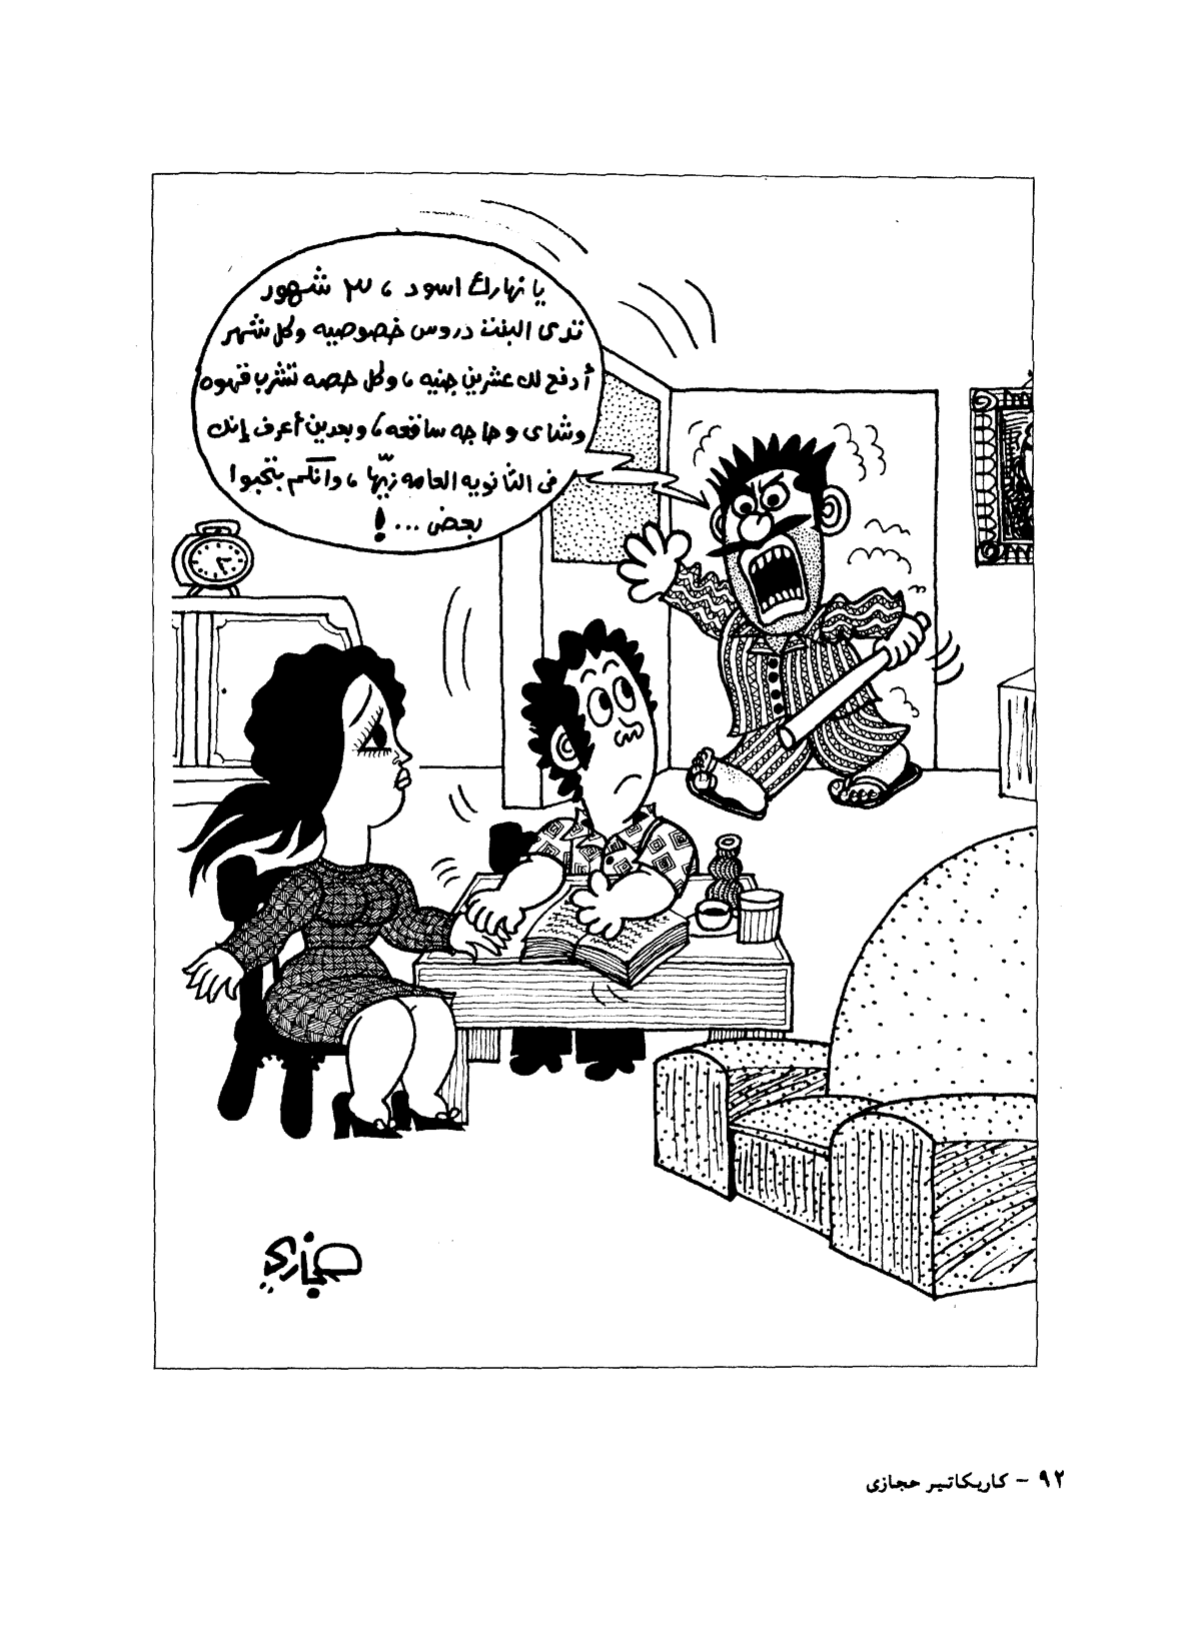 يا نهارك اسود ، ٣ شهور
تدى البنت دروس خصوصيه وكل شهر
أدفع لك عشرين جنيه ، وكل حصه تشرب قهوه
وشاى وحاجه ساقعه ، وبعدين أعرف إنك
فى الثانويه العامه زيّها ، وانكم بتحبوا
بعض ... !
حجازي
٩٢ - كاريكاتير حجازى